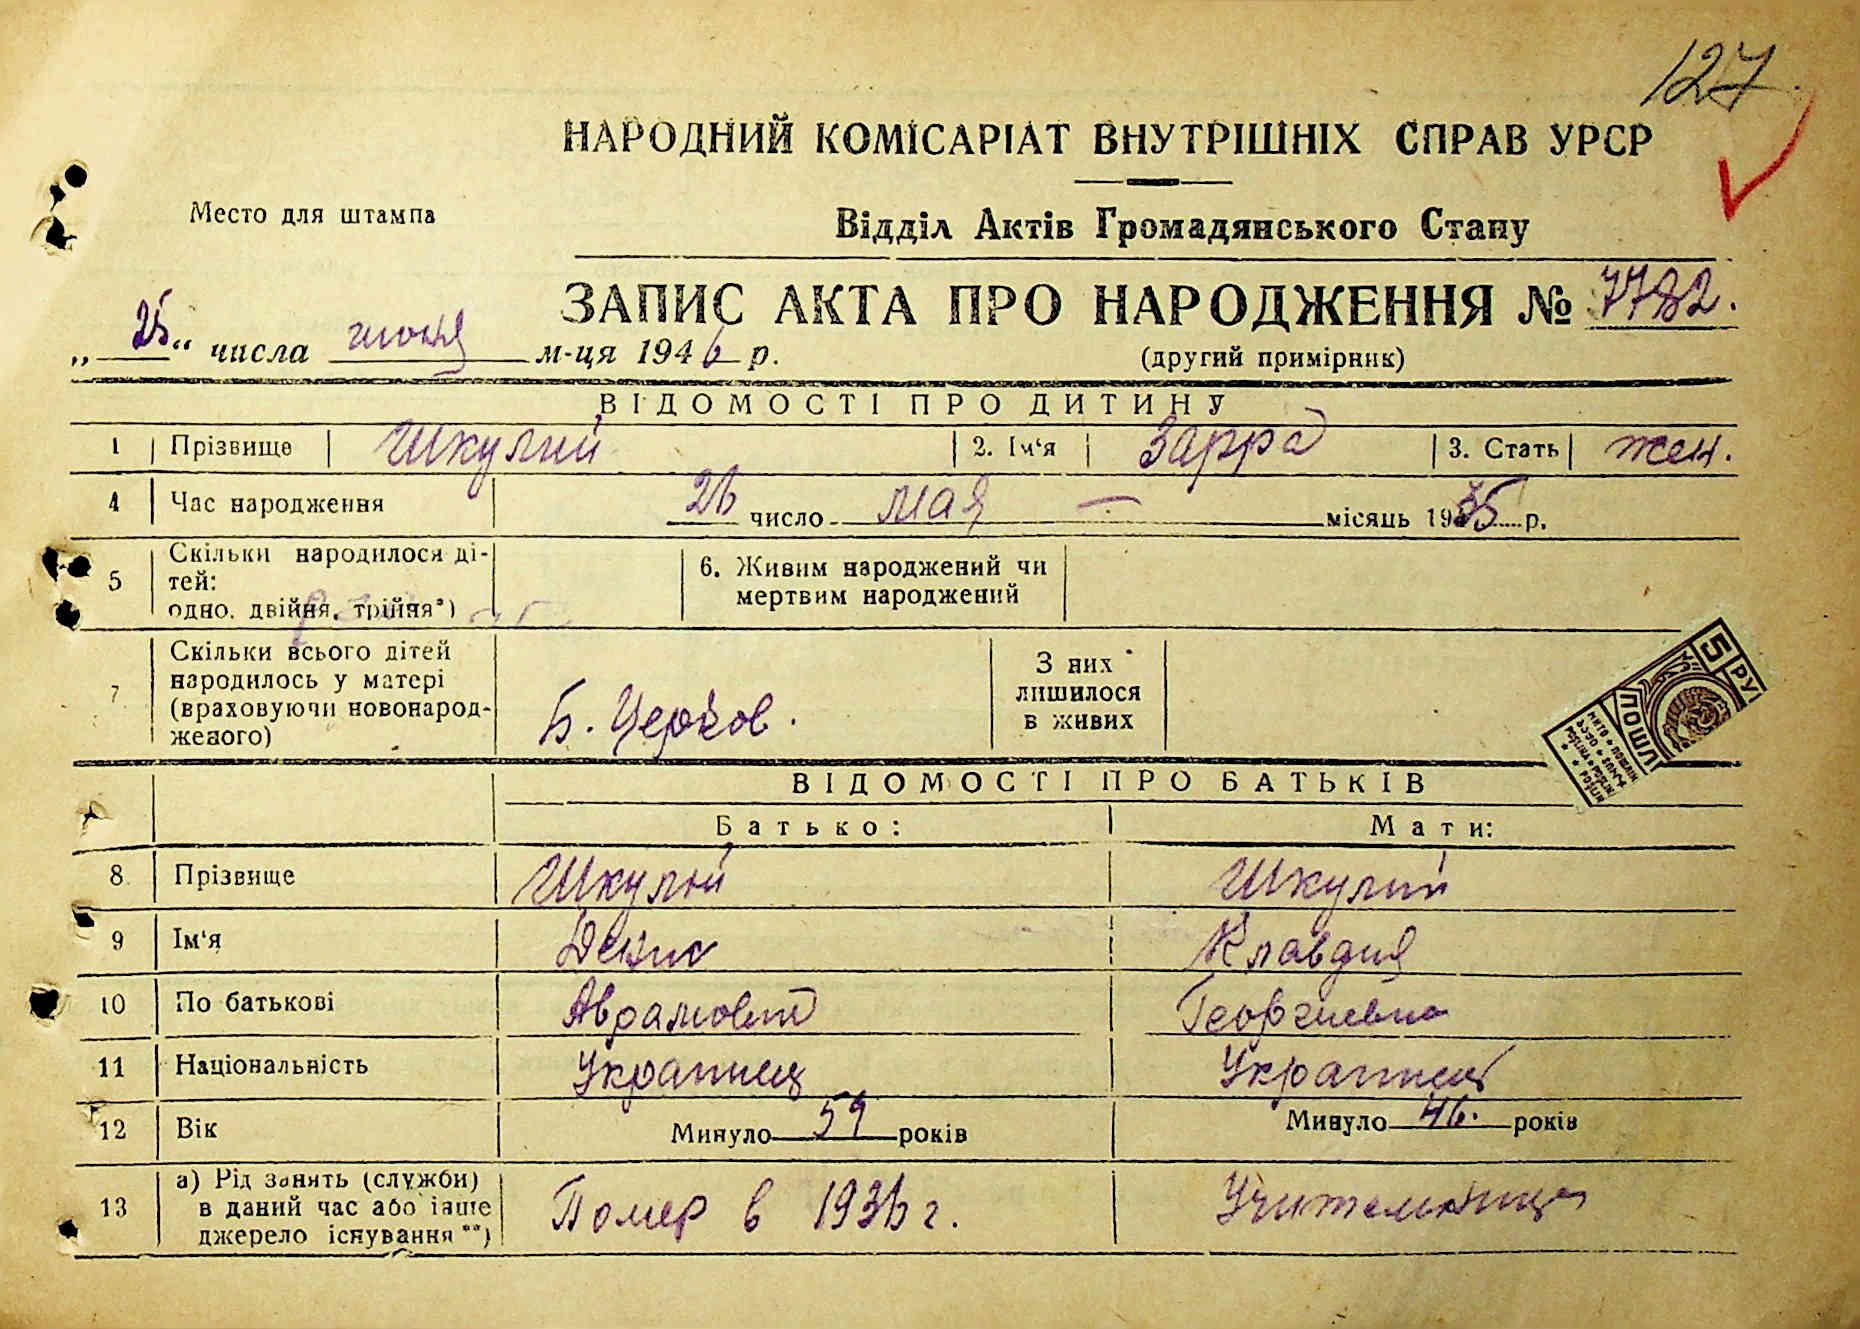 127
НАРОДНИЙ КОМІСАРІАТ ВНУТРІШНІХ СПРАВ УРСР
Место для штампа
Відділ Актів Громадянського Стану
ЗАПИС АКТА ПРО НАРОДЖЕННЯ № 7782.
„25“ числа июня м-ця 1946 р.
(другий примірник)
ВІДОМОСТІ ПРО ДИТИНУ
1 Прізвище Шкулий 2. Ім'я Зарра 3. Стать жен.
4 Час народження 26 число мая — місяць 1935 р.
5 Скільки народилося ді-
тей:
одно, двійня, трійня*)
6. Живим народжений чи
мертвим народжений
7 Скільки всього дітей
народилось у матері
(враховуючи новонарод-
женого)
Б. Церков.
З них
лишилося
в живих
5 РУ
ПОШЛ
ВІДОМОСТІ ПРО БАТЬКІВ
Батько: Мати:
8 Прізвище Шкулий Шкулий
9 Ім'я Денис Клавдия
10 По батькові Аврамович Георгиевна
11 Національність Украинец Украинец
12 Вік Минуло 59 років Минуло 46. років
13 а) Рід занять (служби)
в даний час або інше
джерело існування**)
Помер в 1936 г. Учительница